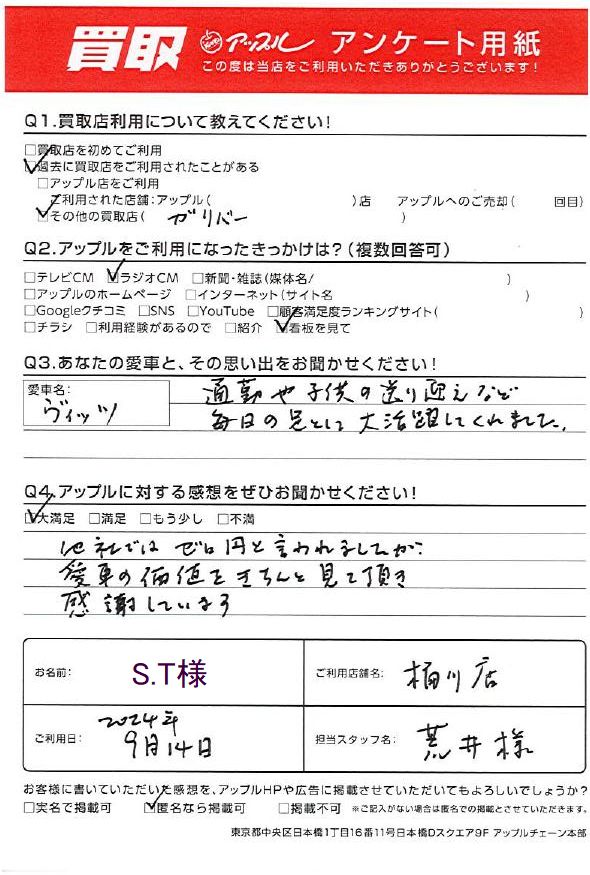 買取 アップル アンケート用紙
この度は当店をご利用いただきありがとうございます!
Q1.買取店利用について教えてください!
□買取店を初めてご利用
☑過去に買取店をご利用されたことがある
□アップル店をご利用
ご利用された店舗:アップル( )店 アップルへのご売却( 回目)
☑その他の買取店( ガリバー )
Q2.アップルをご利用になったきっかけは?(複数回答可)
□テレビCM ☑ラジオCM □新聞・雑誌(媒体名/ )
□アップルのホームページ □インターネット(サイト名 )
□Googleクチコミ □SNS □YouTube □顧客満足度ランキングサイト( )
□チラシ □利用経験があるので □紹介 ☑看板を見て
Q3.あなたの愛車と、その思い出をお聞かせください!
愛車名:
ヴィッツ
通勤や子供の送り迎えなど
毎日の足として大活躍してくれました。
Q4.アップルに対する感想をぜひお聞かせください!
☑大満足 □満足 □もう少し □不満
他社ではゼロ円と言われましたが、
愛車の価値をきちんと見て頂き
感謝しています
お名前: S.T様
ご利用店舗名: 桶川店
ご利用日: 2024年
9月14日
担当スタッフ名: 荒井様
お客様に書いていただいた感想を、アップルHPや広告に掲載させていただいてもよろしいでしょうか?
□実名で掲載可 ☑匿名なら掲載可 □掲載不可 ※ご記入がない場合は匿名での掲載とさせていただきます。
東京都中央区日本橋1丁目16番11号日本橋Dスクエア9F アップルチェーン本部